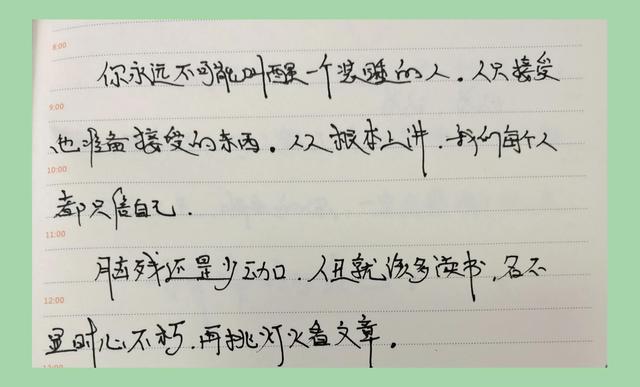 8:00
你永远不可能叫醒一个装睡的人。人只接受
9:00
他准备接受的东西。从根本上讲,我们每个人
10:00
都只信自己.
11:00
脑残还是少动口.人丑就该多读书,名不
12:00
显时心不朽,再挑灯火看文章。